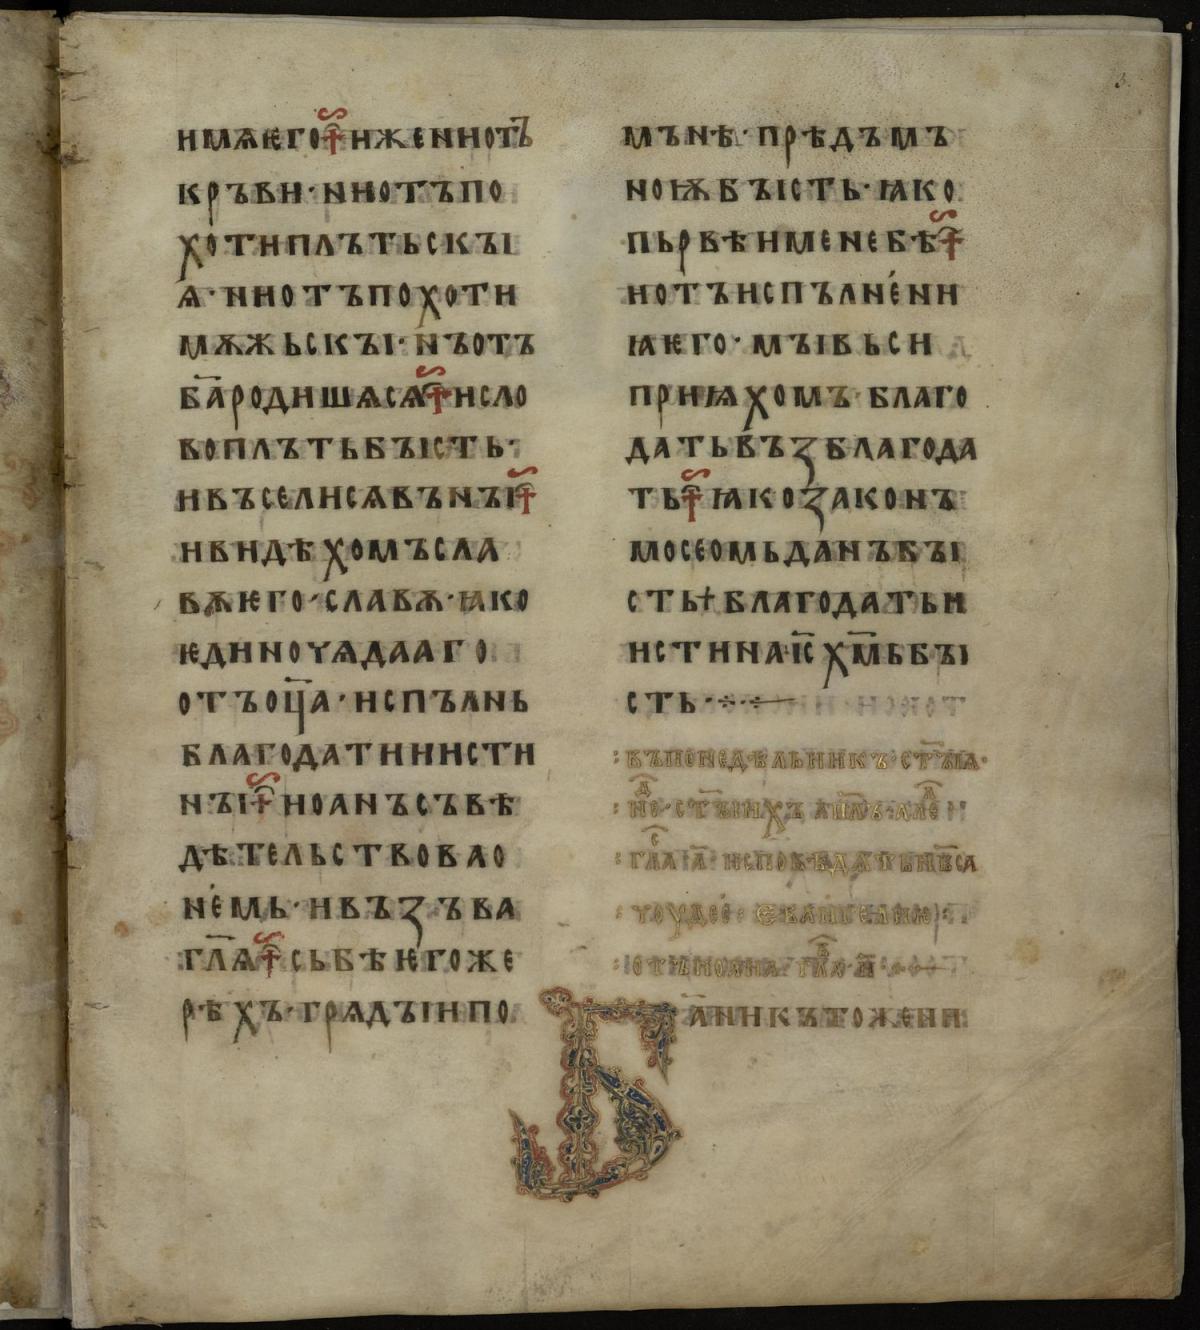 имѧѥго иже ни отъ
кръви · ни отъ по
хоти плътьскꙑ
ѧ · ни отъ похоти
мѫжьскꙑ · нъ отъ
б҃а родишѧсѧ и сло
во плъть бꙑсть ·
и въселисѧ въ нꙑ
и видѣхомъ сла
вѫ ѥго · славѫ · ꙗко
ѥдиночѧдааго
отъ оц҃а · испълнь
благодати и исти
нꙑ иоанъ съвѣ
дѣтельствова о
немь · и възъва
гл҃ѧ сь бѣ ѥгоже
рѣхъ · грѧдꙑи по
мънѣ · прѣдъ мъ
ноѭ бꙑсть · ꙗко
пьрвѣи мене бѣ
и отъ испълнени
ꙗ ѥго · мꙑ вьси
приѩхомъ · благо
дать въꙁ благода
ть ꙗко ꙁаконъ
мосеомь данъ бꙑ
сть благодать и
истина іс҃ хм҃ь бꙑ
сть ·
въ понедѣльникъ ст҃ꙑꙗ ·
не ст҃ꙑихъ ап҃лъ алле
гла а҃ исповѣдѧть нб҃са
чоудес еваньгелиѥ
отъ иоана гла и҃
б҃а никътоже ни
3